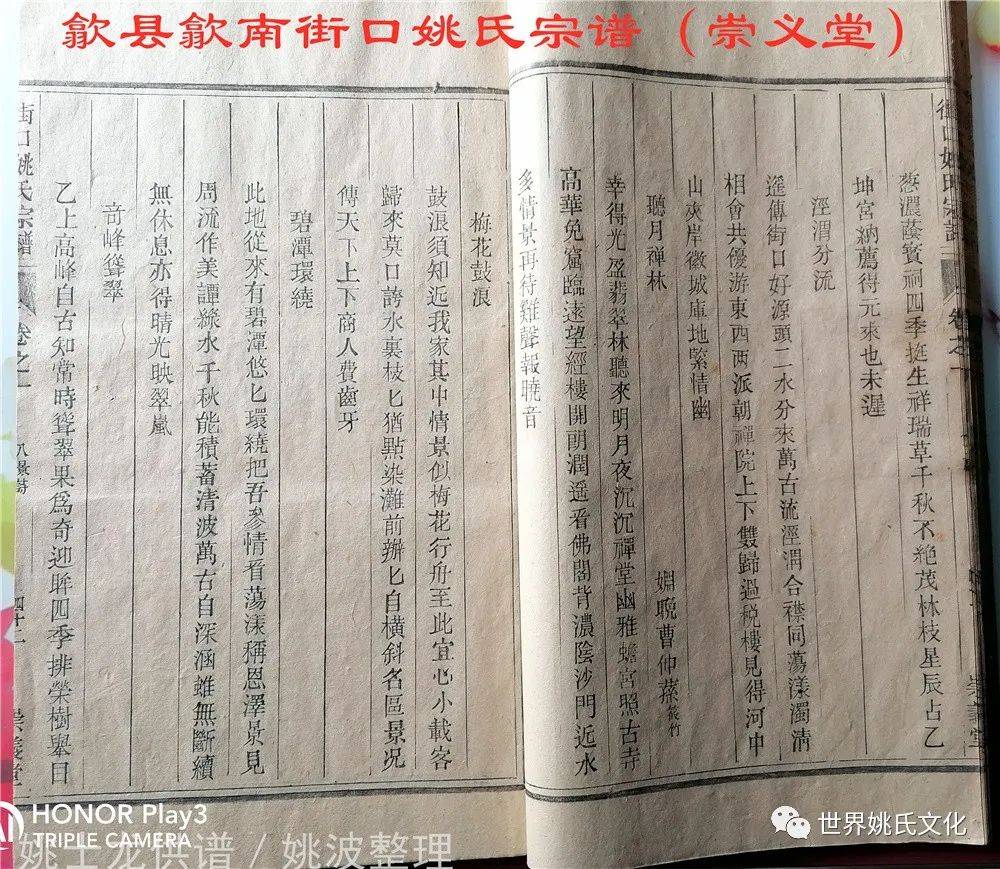 歙县歙南街口姚氏宗谱（崇义堂）
葱濃蔭賓祠四季挺生祥瑞草千秋不絶茂林枝星辰占乙
坤宫納薦待元來也未遲
涇渭分流
遥傳街口好源頭二水分來萬古流涇渭合襟同蕩漾濁清
相會共優游東西两派朝禪院上下雙歸過税樓見得河中
山夾岸徽城庫地緊情幽
聽月禪林
姻晚曹仲蓀筱竹
幸得光盈翡翠林聽來明月夜沉沉禪堂幽雅蟾宫照古寺
高華免窟臨遠望經樓開朗潤遥看佛閣背濃陰沙門近水
多情景再待雞聲報曉音
梅花鼓浪
鼓浪須知近我家其中情景似梅花行舟至此宜心小載客
歸來莫口誇水裏枝匕猶點染灘前辦匕自横斜名區景况
傳天下上下商人費齒牙
碧潭環繞
此地從來有碧潭悠匕環繞把吾參情看蕩漾稱恩澤景見
周流作美譚緑水千秋能積蓄清波萬古自深涵雖無斷續
無休息亦得晴光映翠嵐
奇峰聳翠
乙上高峰自古知常時聳翠果爲奇迎眸四季排榮樹舉目
街口姚氏宗譜
卷之一
八景詩
四十二
崇義堂
HONOR Play3
TRIPLE CAMERA
姚土龙供谱 / 姚波整理
世界姚氏文化